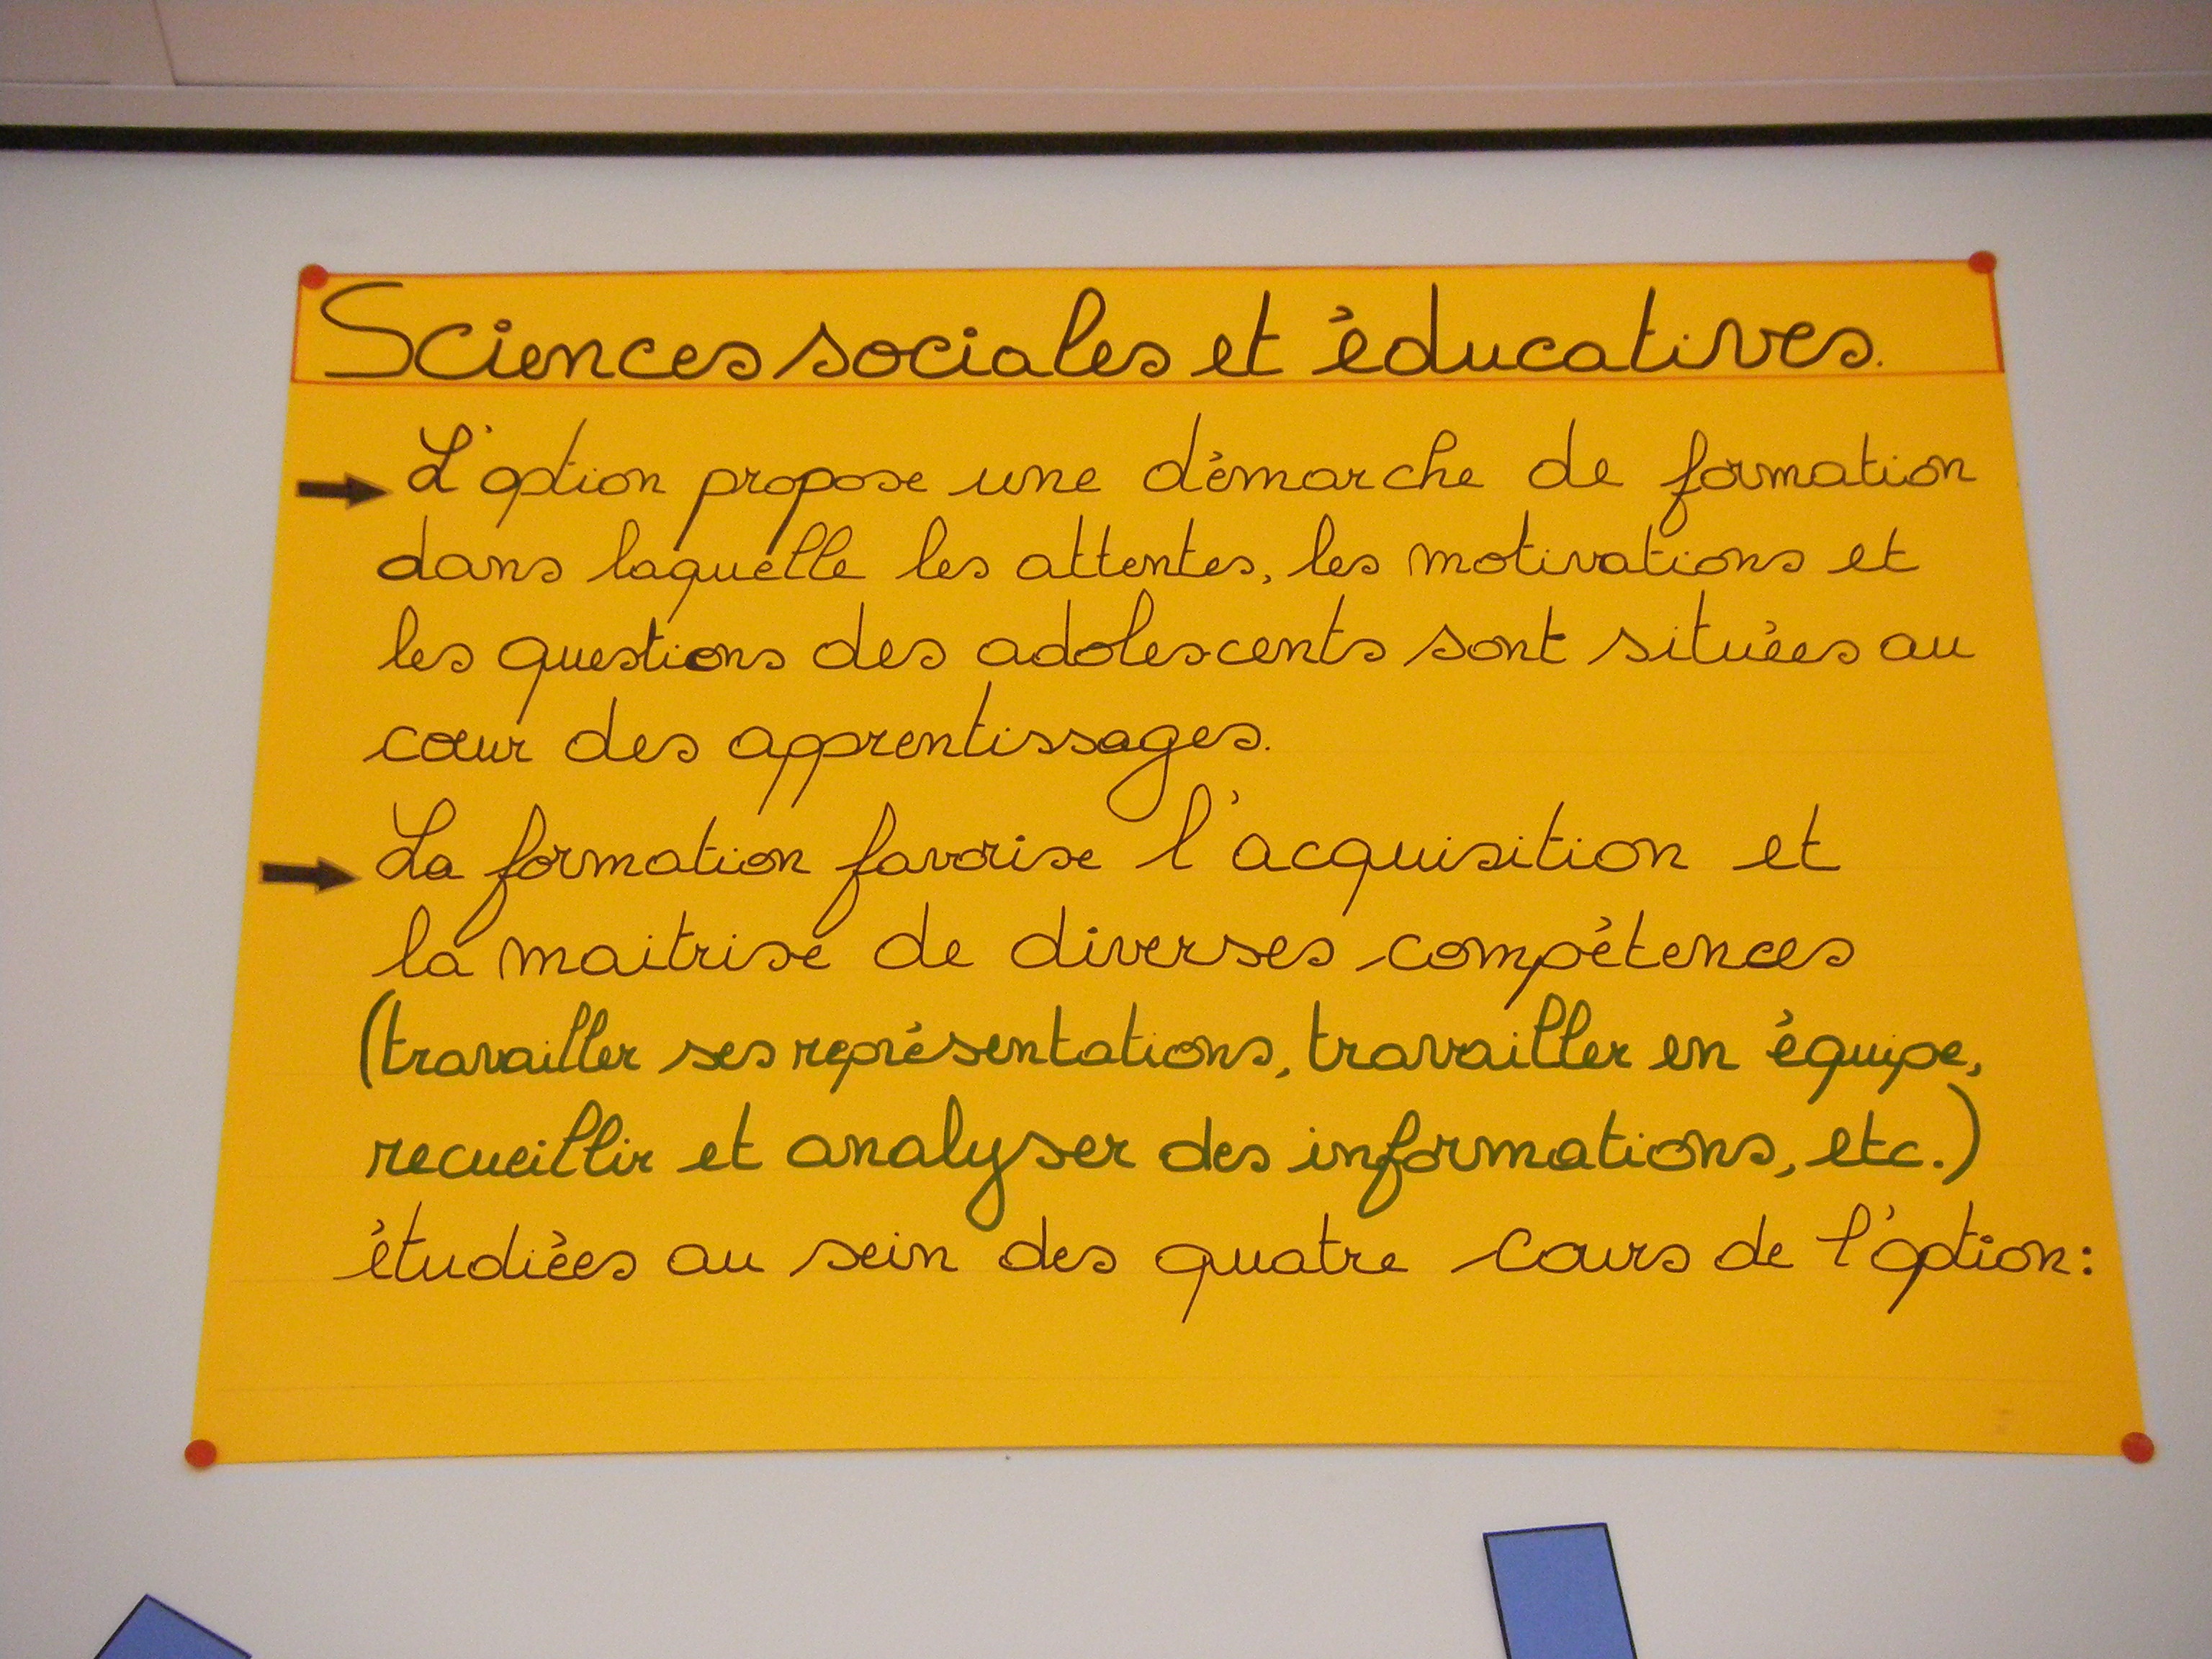 Sciences sociales et éducatives.
L'option propose une démarche de formation
dans laquelle les attentes, les motivations et
les questions des adolescents sont situées au
cœur des apprentissages.
La formation favorise l'acquisition et
la maitrise de diverses compétences
(travailler ses représentations, travailler en équipe,
recueillir et analyser des informations, etc.)
étudiées au sein des quatre cours de l'option: